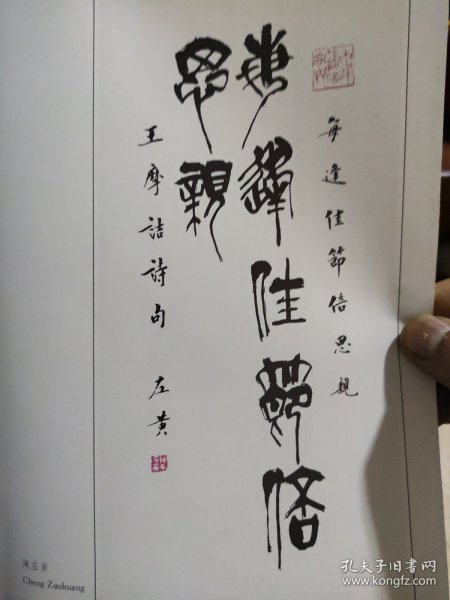 每逢佳節倍思親
每逢佳節倍
思親
王摩詰詩句 左黄
陳左黄
Cheng Zuohuang
孔夫子旧书网
www.kongfz.com